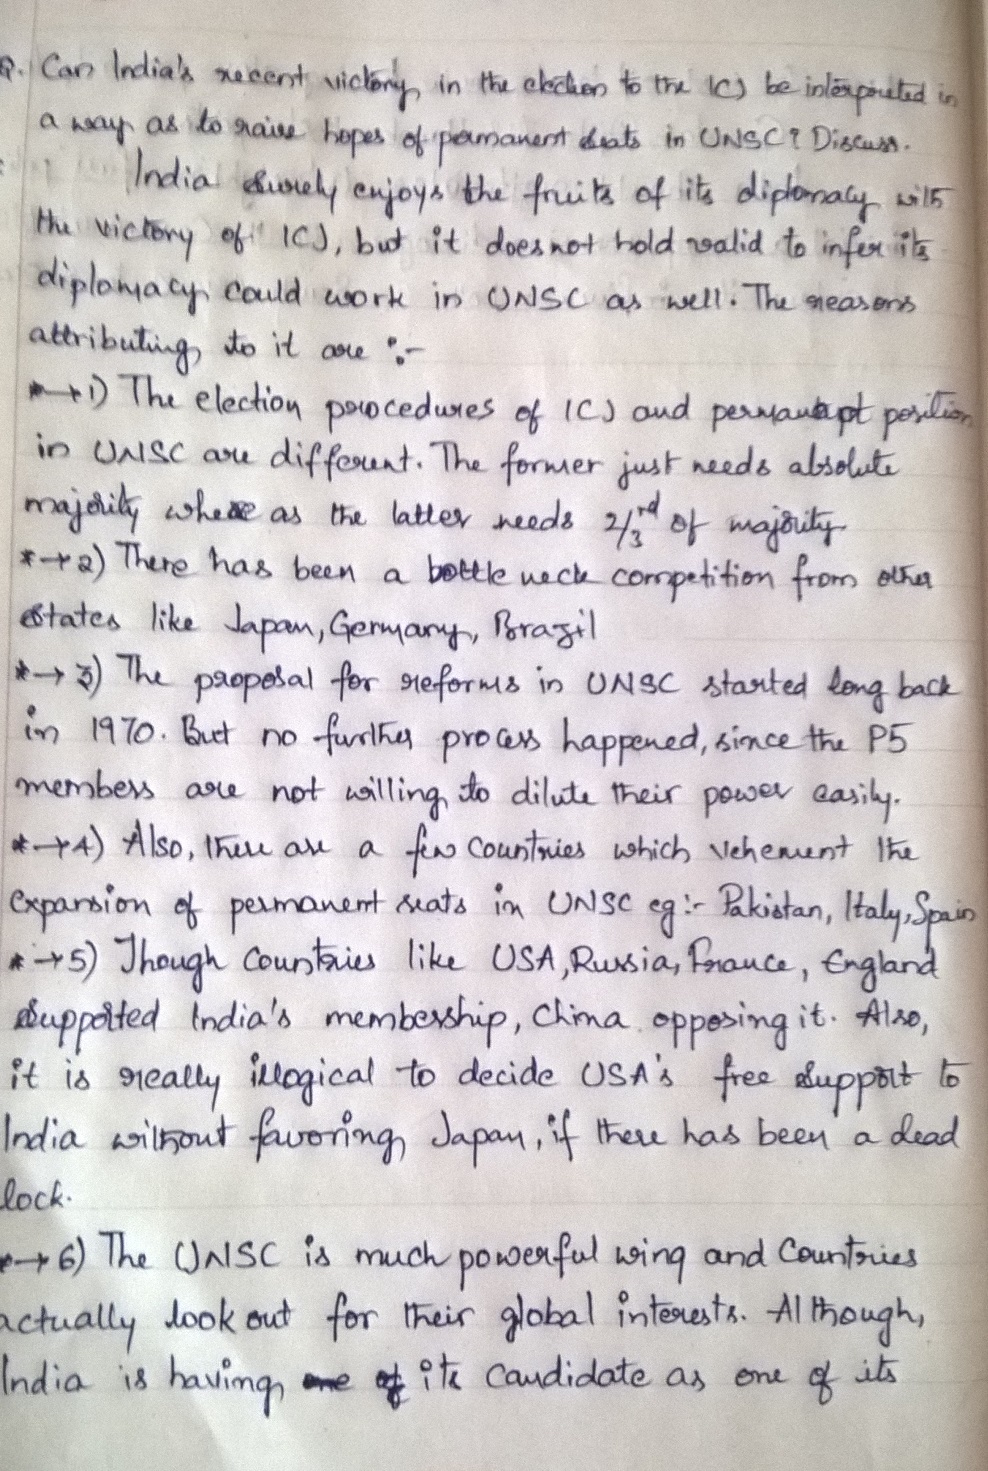 Q. Can India's recent victory in the election to the ICJ be interpreted in
a way as to raise hopes of permanent seats in UNSC? Discuss.
India surely enjoys the fruits of its diplomacy with
the victory of ICJ, but it does not hold valid to infer its
diplomacy could work in UNSC as well. The reasons
attributing to it are :-
*→1) The election procedures of ICJ and permanent position
in UNSC are different. The former just needs absolute
majority where as the latter needs 2/3rd of majority
*→2) There has been a bottle neck competition from other
states like Japan, Germany, Brazil
*→3) The proposal for reforms in UNSC started long back
in 1970. But no further process happened, since the P5
members are not willing to dilute their power easily.
*→4) Also, there are a few countries which vehement the
expansion of permanent seats in UNSC eg:- Pakistan, Italy, Spain
*→5) Though countries like USA, Russia, France, England
supported India's membership, China opposing it. Also,
it is really illogical to decide USA's free support to
India without favoring Japan, if there has been a dead
lock.
*→6) The UNSC is much powerful wing and Countries
actually look out for their global interests. Although,
India is having its candidate as one of its